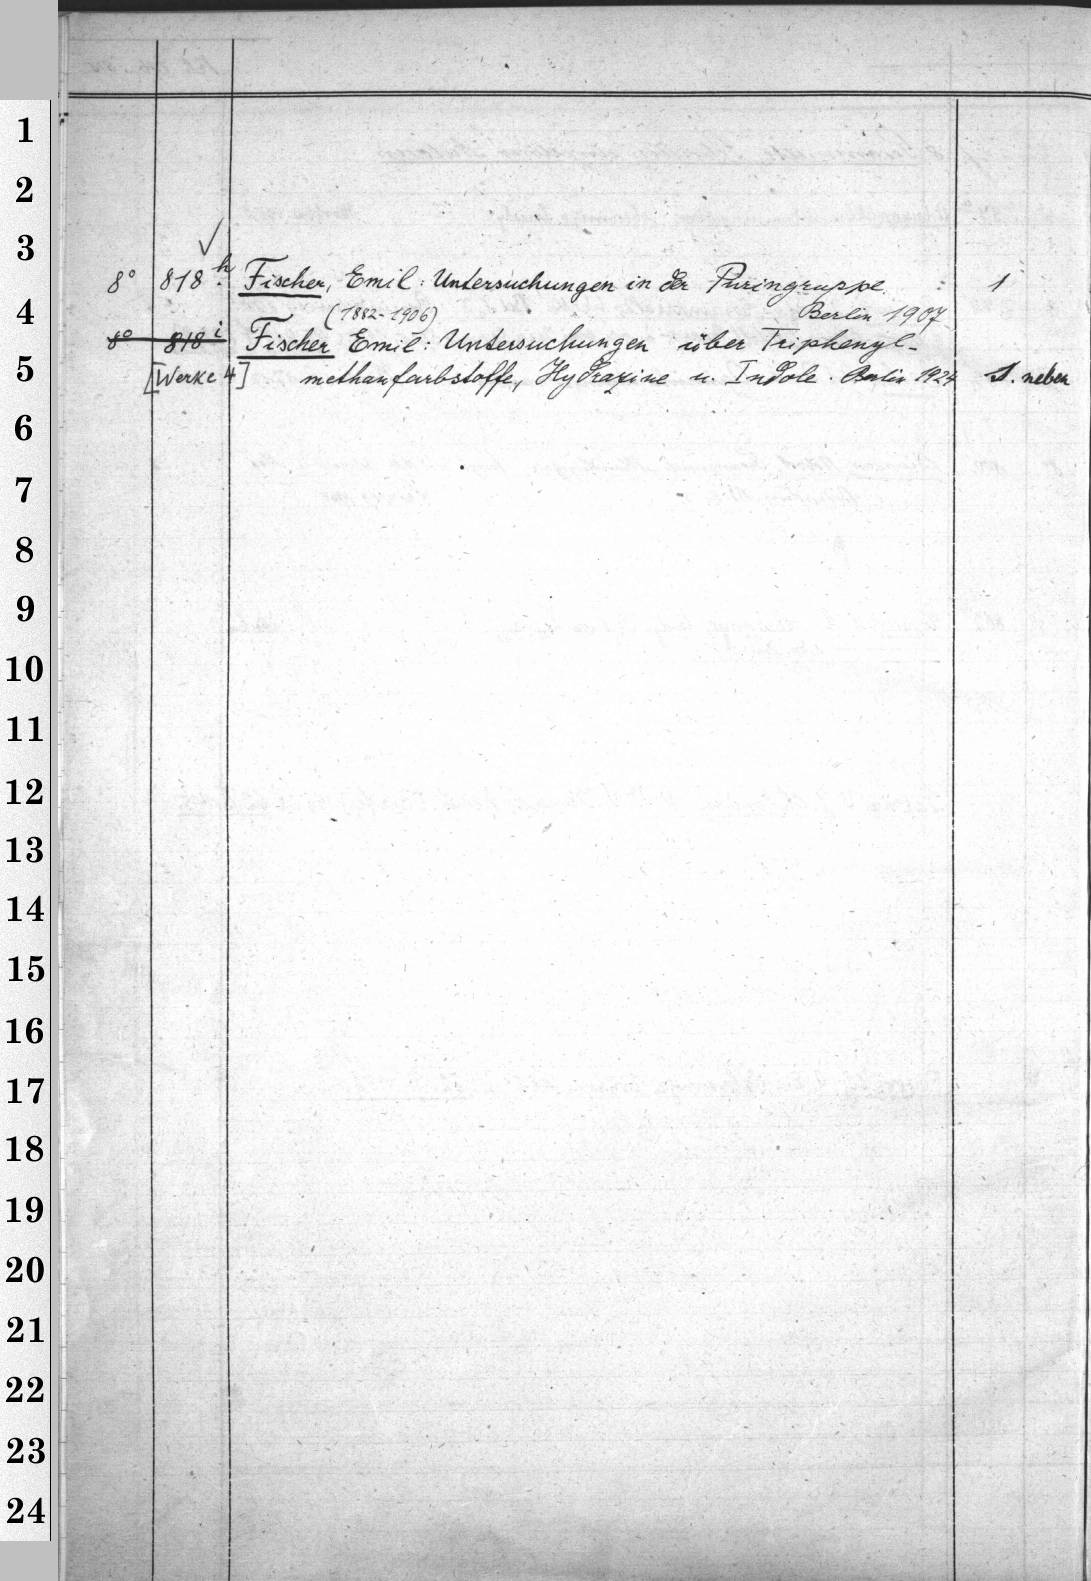 1
2
3
✓
8° 818 h. Fischer, Emil: Untersuchungen in der Puringruppe. : 1
4 (1882-1906) Berlin 1907
8° 818 i Fischer Emil: Untersuchungen über Triphenyl-
5 [Werke 4] methanfarbstoffe, Hydrazine u. Indole. Berlin 1924 S. neben
6
7
8
9
10
11
12
13
14
15
16
17
18
19
20
21
22
23
24